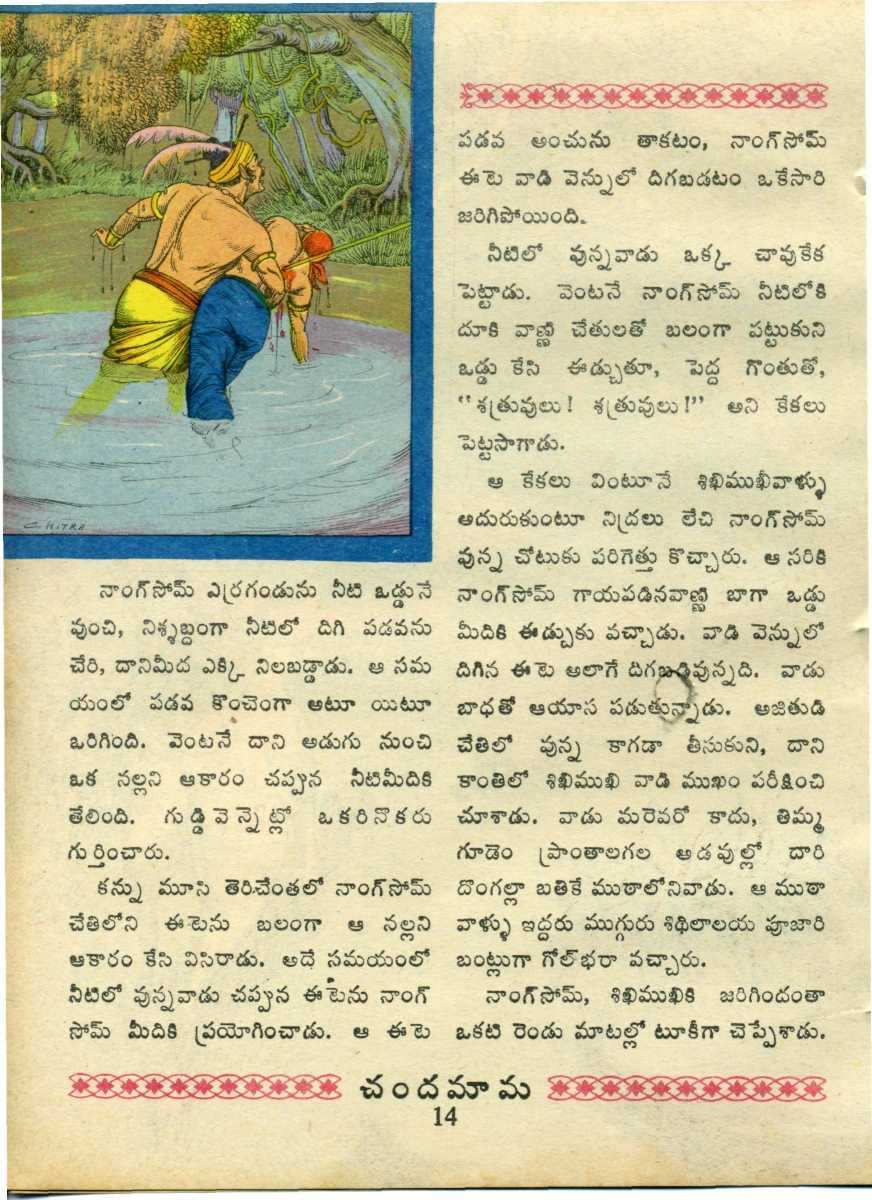 C HITRA
నాంగ్‌సోమ్ ఎర్రగండును నీటి ఒడ్డునే
వుంచి, నిశ్శబ్దంగా నీటిలో దిగి పడవను
చేరి, దానిమీద ఎక్కి నిలబడ్డాడు. ఆ సమ
యంలో పడవ కొంచెంగా అటూ యిటూ
ఒరిగింది. వెంటనే దాని అడుగు నుంచి
ఒక నల్లని ఆకారం చప్పున నీటిమీదికి
తేలింది. గుడ్డి వెన్నెట్లో ఒకరినొకరు
గుర్తించారు.
కన్ను మూసి తెరిచేంతలో నాంగ్‌సోమ్
చేతిలోని ఈటెను బలంగా ఆ నల్లని
ఆకారం కేసి విసిరాడు. అదే సమయంలో
నీటిలో వున్నవాడు చప్పున ఈటెను నాంగ్
సోమ్ మీదికి ప్రయోగించాడు. ఆ ఈటె
పడవ అంచును తాకటం, నాంగ్‌సోమ్
ఈటె వాడి వెన్నులో దిగబడటం ఒకేసారి
జరిగిపోయింది.
నీటిలో వున్నవాడు ఒక్క చావుకేక
పెట్టాడు. వెంటనే నాంగ్‌సోమ్ నీటిలోకి
దూకి వాణ్ణి చేతులతో బలంగా పట్టుకుని
ఒడ్డు కేసి ఈడ్చుతూ, పెద్ద గొంతుతో,
“శత్రువులు! శత్రువులు!” అని కేకలు
పెట్టసాగాడు.
ఆ కేకలు వింటూనే శిఖిముఖీవాళ్ళు
అదురుకుంటూ నిద్రలు లేచి నాంగ్‌సోమ్
వున్న చోటుకు పరిగెత్తు కొచ్చారు. ఆ సరికి
నాంగ్‌సోమ్ గాయపడినవాణ్ణి బాగా ఒడ్డు
మీదికి ఈడ్చుకు వచ్చాడు. వాడి వెన్నులో
దిగిన ఈటె అలాగే దిగబడివున్నది. వాడు
బాధతో ఆయాస పడుతున్నాడు. అజితుడి
చేతిలో వున్న కాగడా తీసుకుని, దాని
కాంతిలో శిఖిముఖి వాడి ముఖం పరీక్షించి
చూశాడు. వాడు మరెవరో కాదు, తిమ్మ
గూడెం ప్రాంతాలగల అడవుల్లో దారి
దొంగల్లా బతికే ముఠాలోనివాడు. ఆ ముఠా
వాళ్ళు ఇద్దరు ముగ్గురు శిథిలాలయ పూజారి
బంట్లుగా గోల్‌భరా వచ్చారు.
నాంగ్‌సోమ్, శిఖిముఖికి జరిగిందంతా
ఒకటి రెండు మాటల్లో టూకీగా చెప్పేశాడు.
చందమామ
14